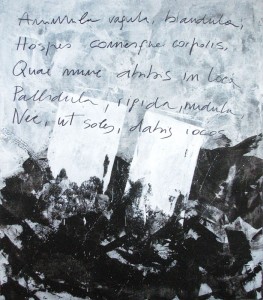 Animula vagula, blandula,
Hospes comesque corporis,
Quae nunc abibis in loca
Pallidula, rigida, nudula
Nec, ut soles, dabis iocos